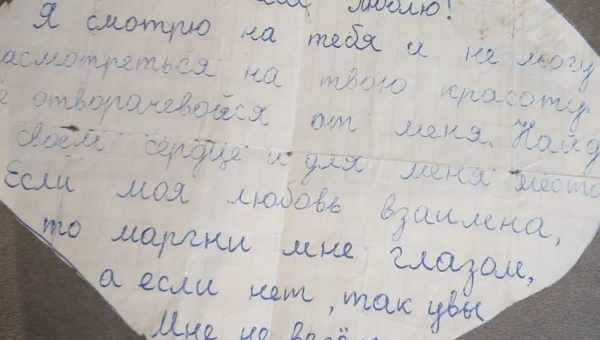 люблю!
Я смотрю на тебя и не могу
насмотреться на твою красоту.
отворачевойся от меня. Найд
своем сердце и для меня место
Если моя любовь взаимена,
то моргни мне глазом,
а если нет, так увы
Мне не